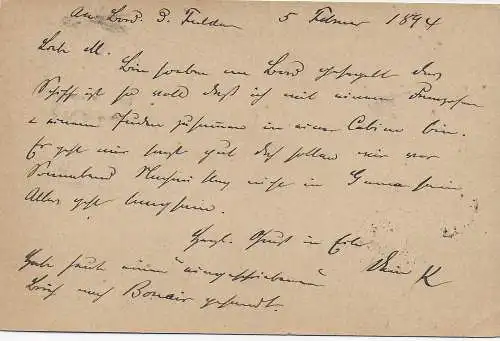 An Bord D. Fulda 5 Februar 1894
Liebe M.
Bin soeben an Bord das
Schiff ist so voll daß ich mit einem Franzosen
& einem Juden zusammen in einer Cabine bin.
Es geht mir sonst gut doch sollen wir vor
Sonnabend Nachmittag nicht in Genua sein.
Alles geht langsam.
Herzl. Gruß in Eile Dein K
Habe heute einen eingeschriebenen
Brief nach gesandt.